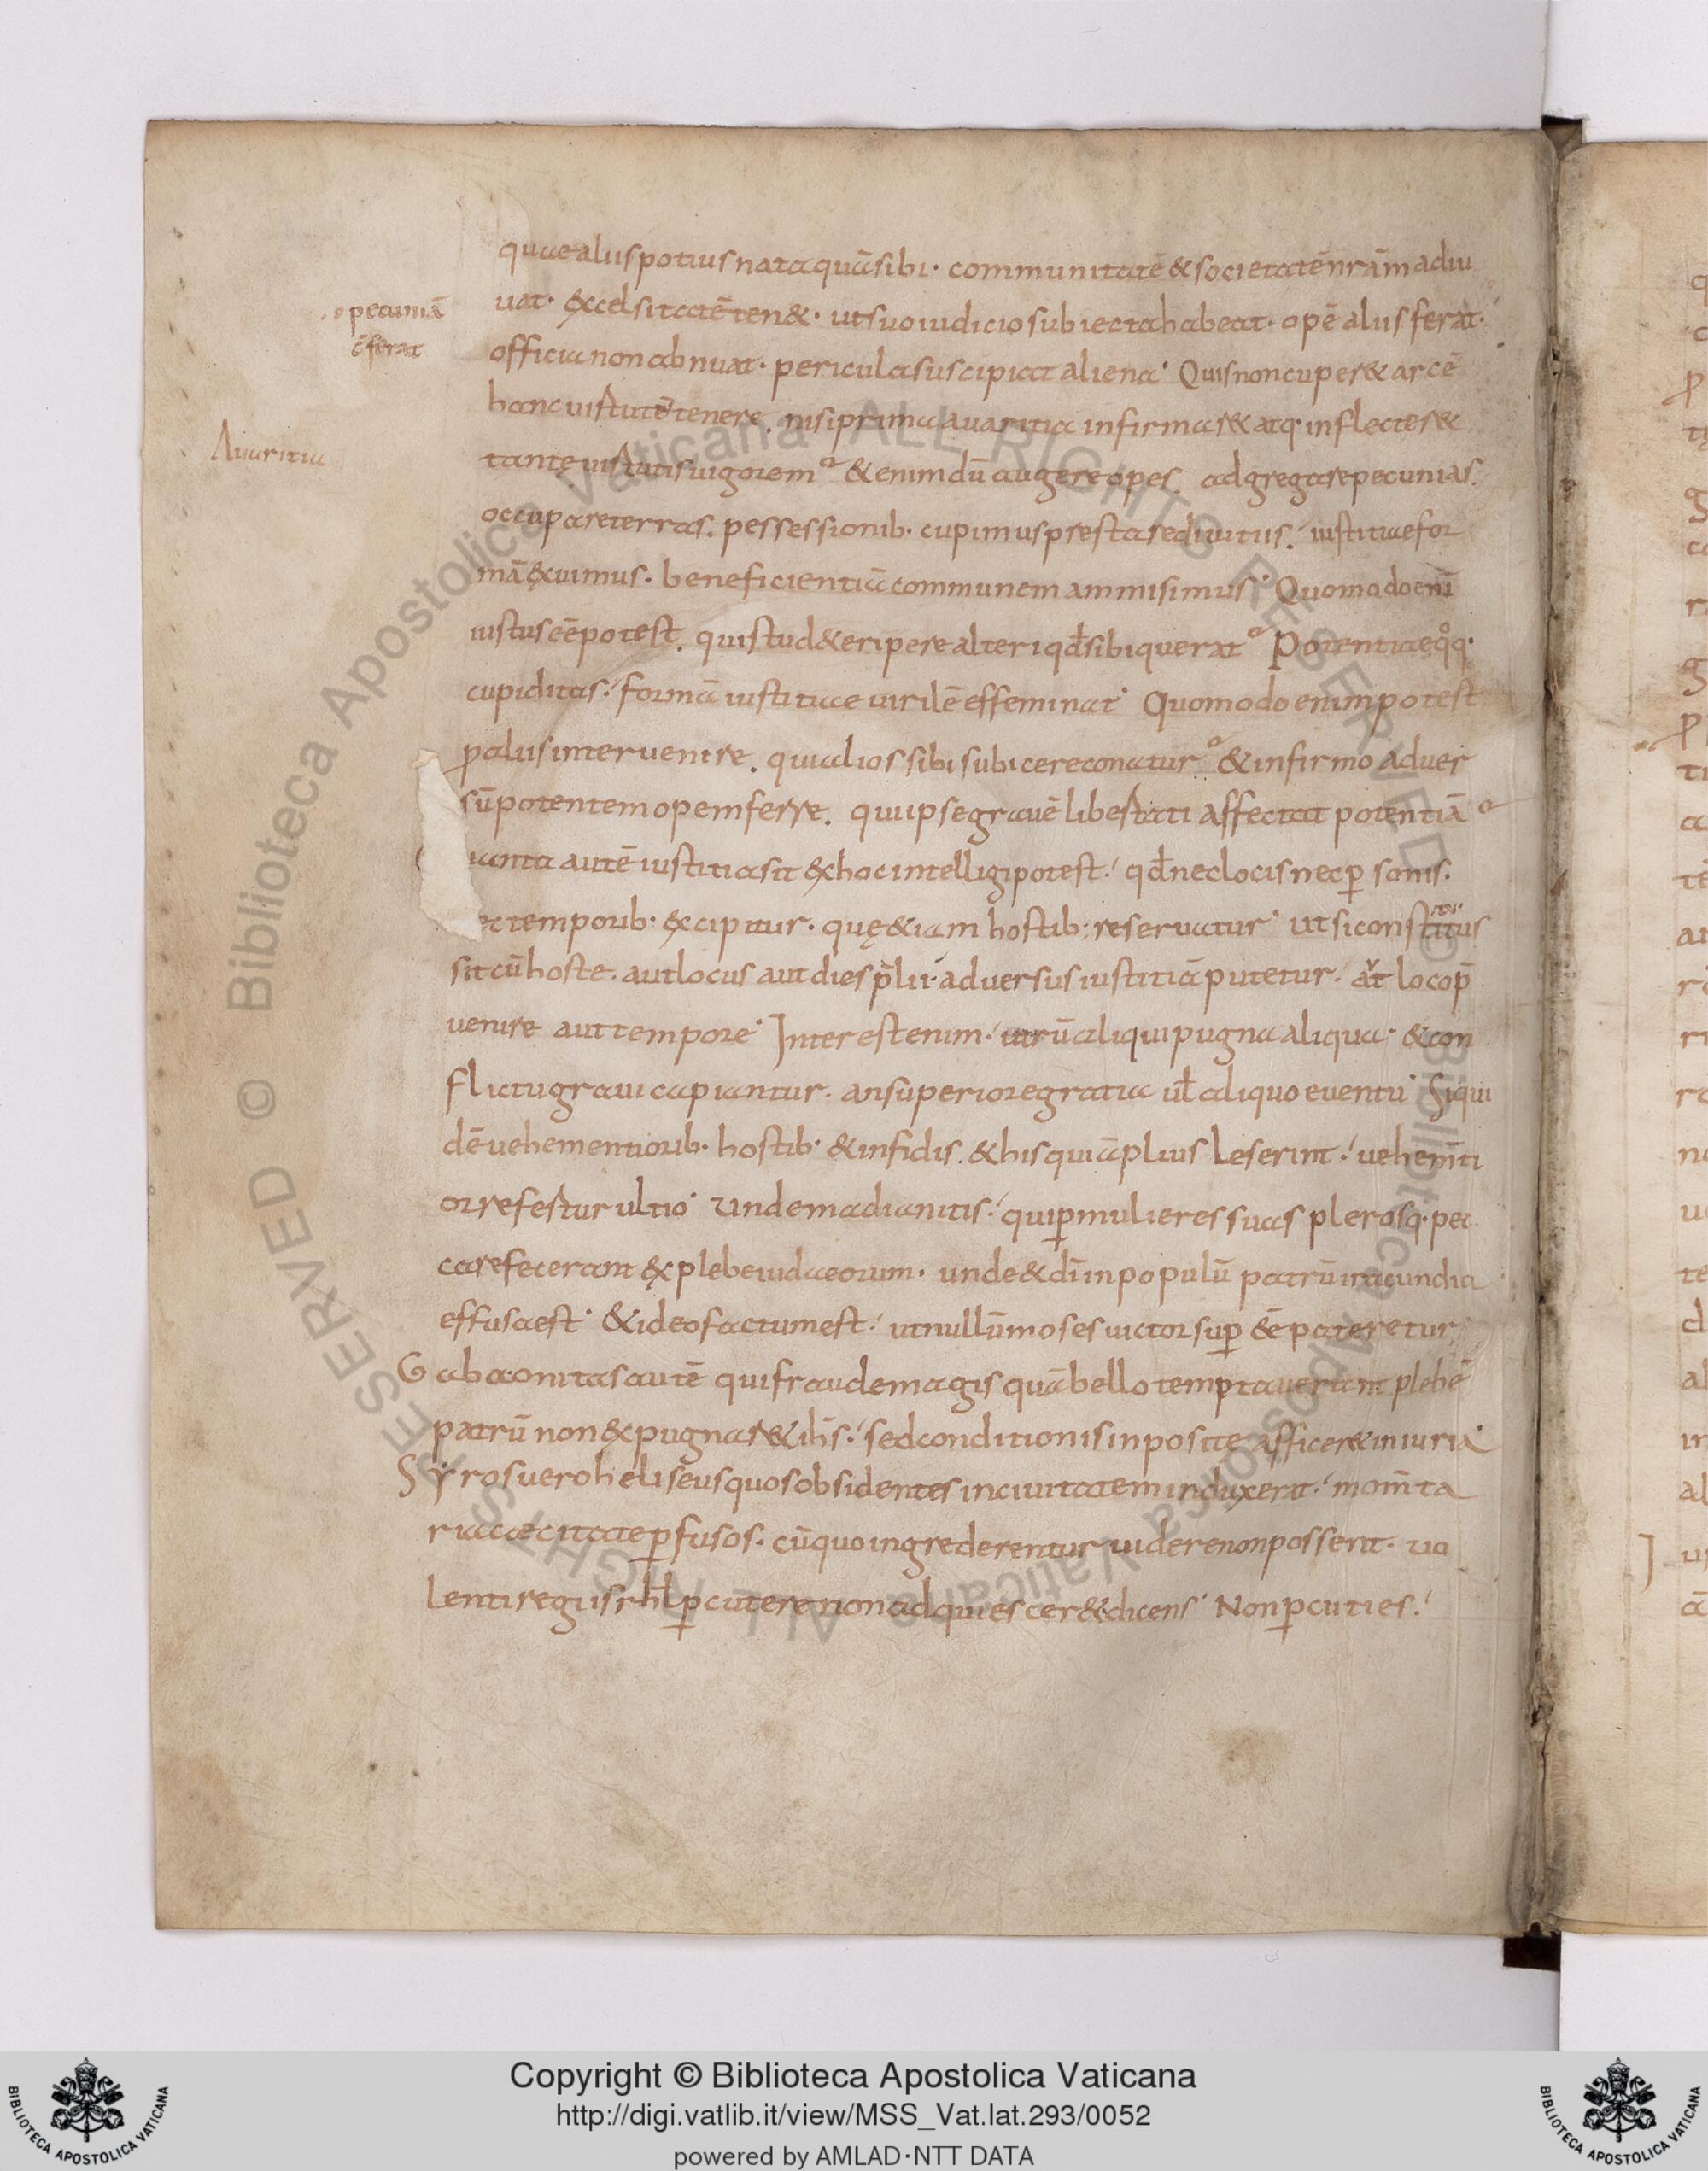 quae aliis potius nata quā sibi· communitatē & societatē nr̄am adiu
uat· excelsitatē ten&· ut suo iudicio subiecta habeat· opē aliis ferat·
pecuniā
cōferat
officia non abnuat· pericula suscipiat aliena· Quis non cuper& arcē
hanc uirtutē tenere. nisi prima auaritia infirmar& atq· inflecter&
Auaritia
tantę uirtutis uigorem? &enim dū augere opes. adgregare pecunias.
occupare terras. pessessionib· cupimus prestare diuitiis. iustitiae for
mā exuimus· beneficientiā communem ammisimus· Quomodo enī
iustus eē potest. qui stud& eripere alteri qd̄ sibi querat? Potentiae qͦq·
cupiditas· formā iustitiae uirilē effeminat· Quomodo enim potest
p aliis interuenire. qui alios sibi subicere conatur? & infirmo aduer
sū potentem opem ferre. qui ipse grauē libertati affectat potentiā?
uanta autē iustitia sit ex hoc intelligi potest· qd̄ nec locis nec p̄sonis.
ec temporib· excipitur· quę &iam hostib; reseruatur· ut si constitutus
sit cū hoste. aut locus aut dies p̄lii· aduersus iustitiā putetur· aut loco p̄
uenire aut tempore· Interest enim· utrū aliqui pugna aliqua· & con
flictu graui capiantur· an superiore gratia ul̄ aliquo euentu· Siqui
dē uehementiorib· hostib· & infidis. & his qui āplius leserint· uehem̄ti
or refertur ultio· Unde madianitis· qui p̄ mulieres suas plerosq· pec
care fecerant ex plebe iudaeorum· unde & dī in populū patrū iracundia
effusa est· & ideo factum est· ut nullū moses uictor sup̄ eē pateretur
Gabaonitas autē qui fraude magis quā bello temptauerant plebē
patrū non expugnar& ih̄s· sed conditionis inposite afficer& iniuria·
Syros uero heliseus quos obsidentes in ciuitatem induxerat· mom̄ta
ria caecitate p̄fusos· cū quo ingrederentur uidere non possent· uo
lenti regi isrh̄l p̄cutere non adquiescer& dicens· Non p̄cuties·
Copyright © Biblioteca Apostolica Vaticana
http://digi.vatlib.it/view/MSS_Vat.lat.293/0052
powered by AMLAD·NTT DATA